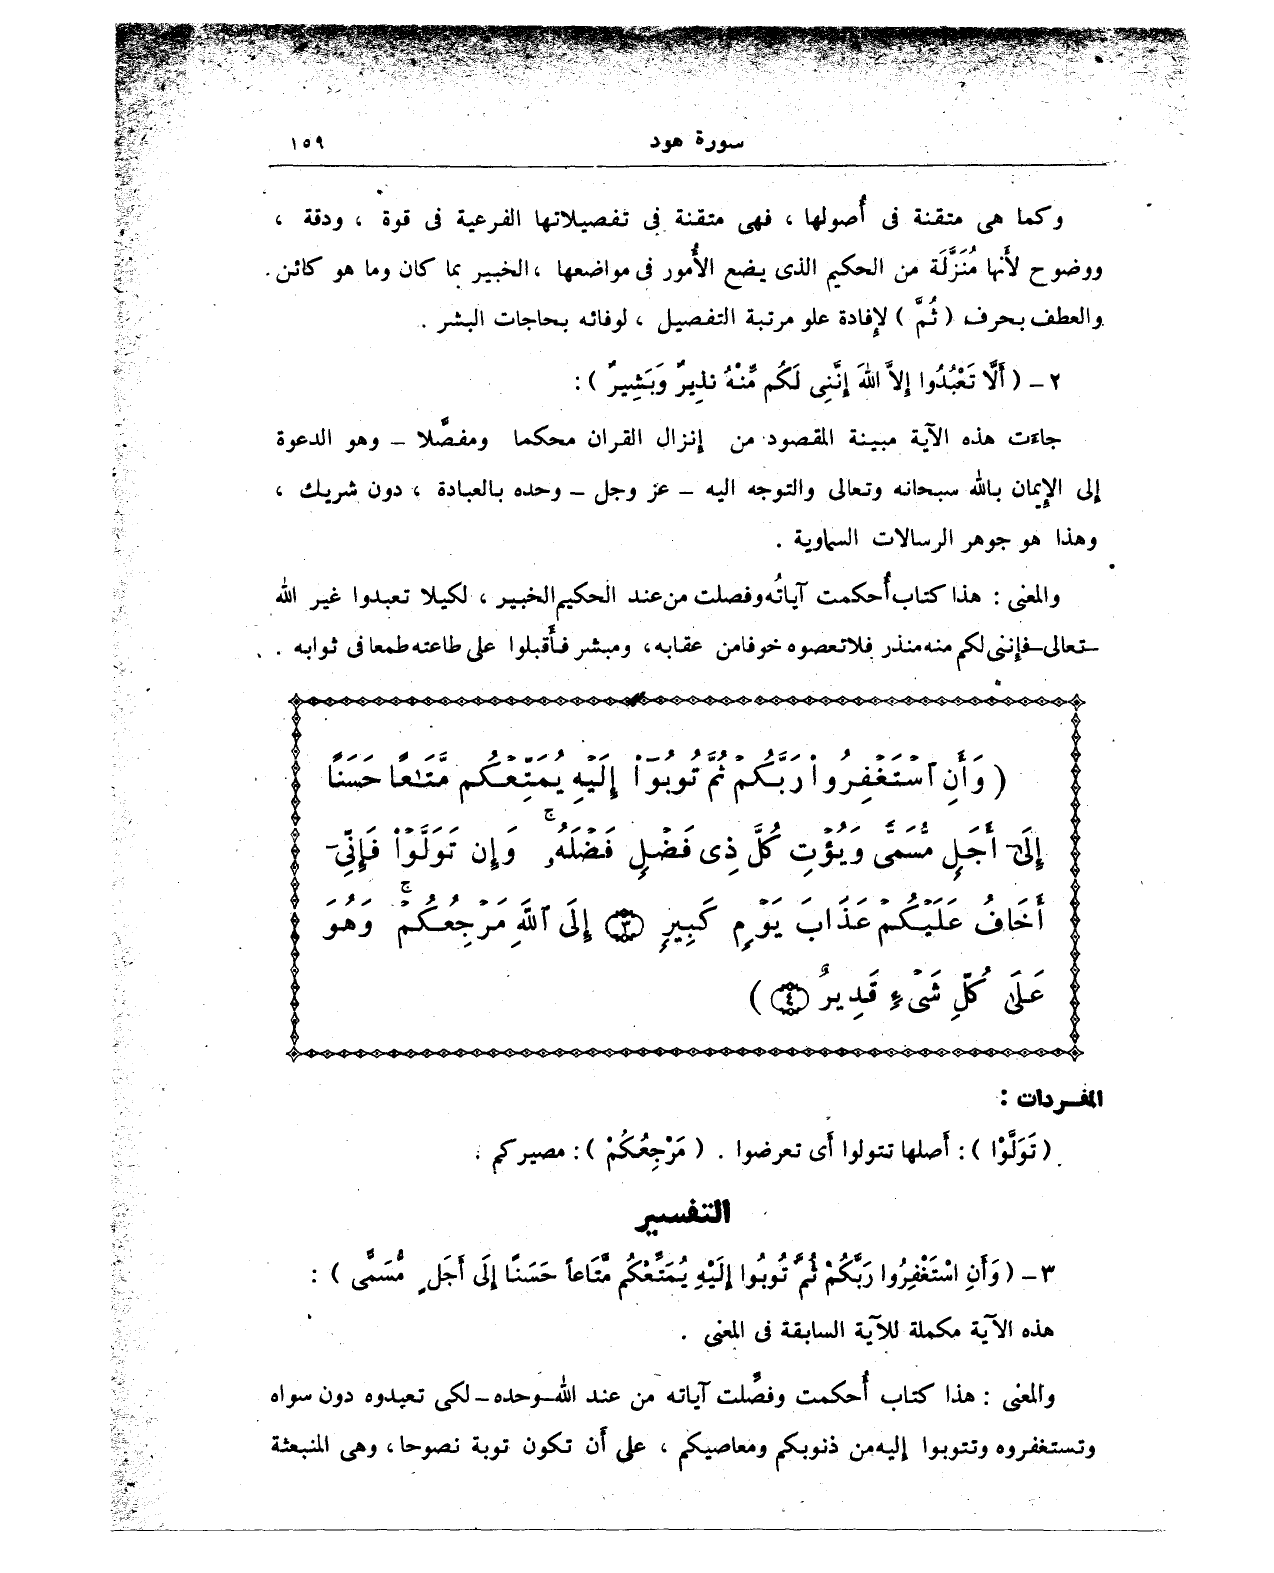 سورة هود ١٥٩
وكما هى متقنة فى أُصولها ، فهى متقنة فى تفصيلاتها الفرعية فى قوة ، ودقة ،
ووضوح لأَنها مُنَزَّلَة من الحكيم الذى يضع الأُمور فى مواضعها ، الخبير بما كان وما هو كائن .
والعطف بحرف ( ثُمَّ ) لإِفادة علو مرتبة التفصيل ، لوفائه بحاجات البشر .
٢ – ( أَلَّا تَعْبُدُوا إِلاَّ اللهَ إِنَّنِى لَكُم مِّنْهُ نذِيرٌ وَبَشِيرٌ ) :
جاءَت هذه الآية مبينة المقصود من إِنزال القران محكما ومفصَّلا – وهو الدعوة
إلى الإِيمان بالله سبحانه وتعالى والتوجه اليه – عز وجل – وحده بالعبادة ، دون شريك ،
وهذا هو جوهر الرسالات السماوية .
والمعنى : هذا كتاب أُحكمت آياتُه وفصلت من عند الحكيم الخبير ، لكيلا تعبدوا غير الله
–تعالى–فإِننى لكم منه منذر فلاتعصوه خوفامن عقابه ، ومبشر فأَقبلوا على طاعته طمعا فى ثوابه .
( وَأَنِ ٱسْتَغْفِرُوا۟ رَبَّكُمْ ثُمَّ تُوبُوٓا۟ إِلَيْهِ يُمَتِّعْكُم مَّتَـٰعًا حَسَنًا
إِلَىٰٓ أَجَلٍ مُّسَمًّى وَيُؤْتِ كُلَّ ذِى فَضْلٍ فَضْلَهُۥ ۚ وَإِن تَوَلَّوْا۟ فَإِنِّىٓ
أَخَافُ عَلَيْكُمْ عَذَابَ يَوْمٍ كَبِيرٍ ﴿٣﴾ إِلَى ٱللَّهِ مَرْجِعُكُمْ ۚ وَهُوَ
عَلَىٰ كُلِّ شَىْءٍ قَدِيرٌ ﴿٤﴾ )
المفـردات :
( تَوَلَّوْا ) : أَصلها تتولوا أَى تعرضوا . ( مَرْجِعُكُمْ ) : مصيركم .
التفسير
٣ – ( وَأَنِ اسْتَغْفِرُوا رَبَّكُمْ ثُمَّ تُوبُوا إِلَيْهِ يُمَتِّعْكُم مَّتَاعاً حَسَنًا إِلَى أَجَلٍ مُّسَمًّى ) :
هذه الآية مكملة للآية السابقة فى المعنى .
والمعنى : هذا كتاب أُحكمت وفصَّلت آياته من عند الله–وحده–لكى تعبدوه دون سواه
وتستغفروه وتتوبوا إليه من ذنوبكم ومعاصيكم ، على أَن تكون توبة نصوحا ، وهى المنبعثة